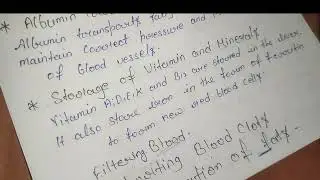 * Albumin
Albumin transports fatty
maintain correct pressure and
of blood vessels.
* Storage of Vitamin and Minerals
Vitamin A,D,E,K and B12 are stored in the liver.
It also store iron in the form of ferritin
to form new red blood cells.
Filtering Blood.
Blood Clots
of